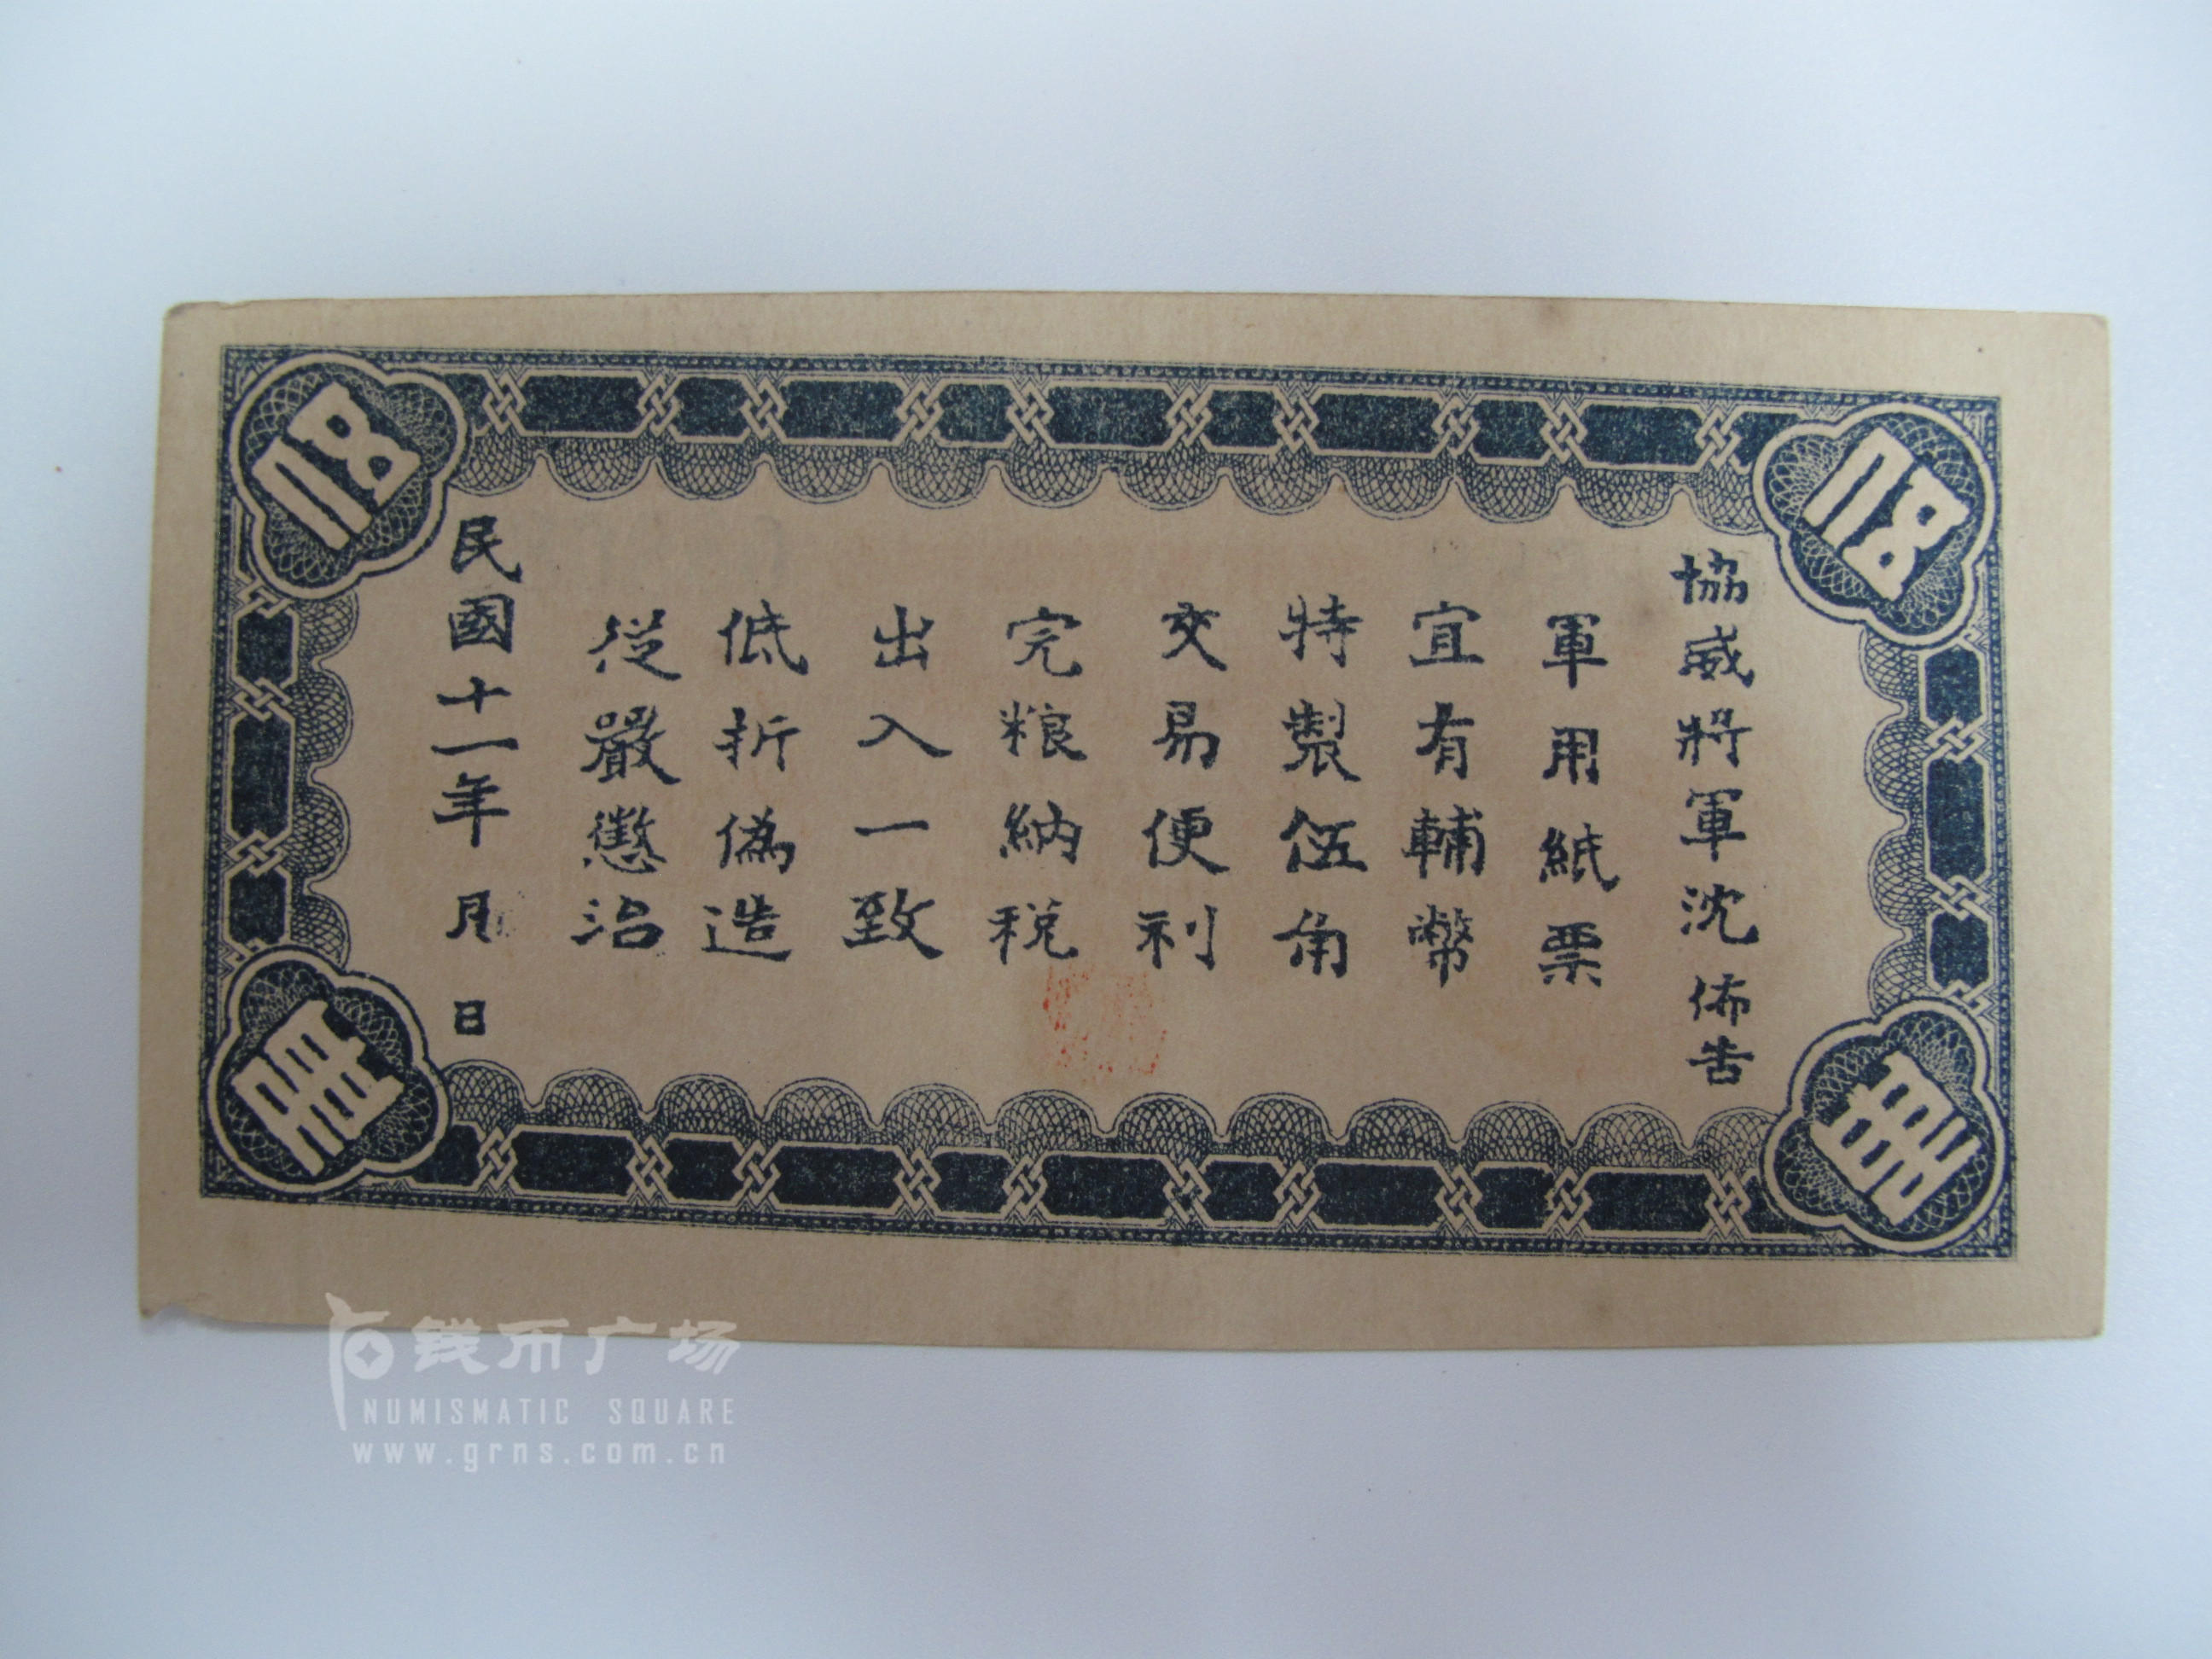 協威將軍沈佈告
軍用紙票
宜有輔幣
特製伍角
交易便利
完粮納税
出入一致
低折偽造
從嚴懲治
民國十一年 月 日
钱币广场
NUMISMATIC SQUARE
www.grns.com.cn